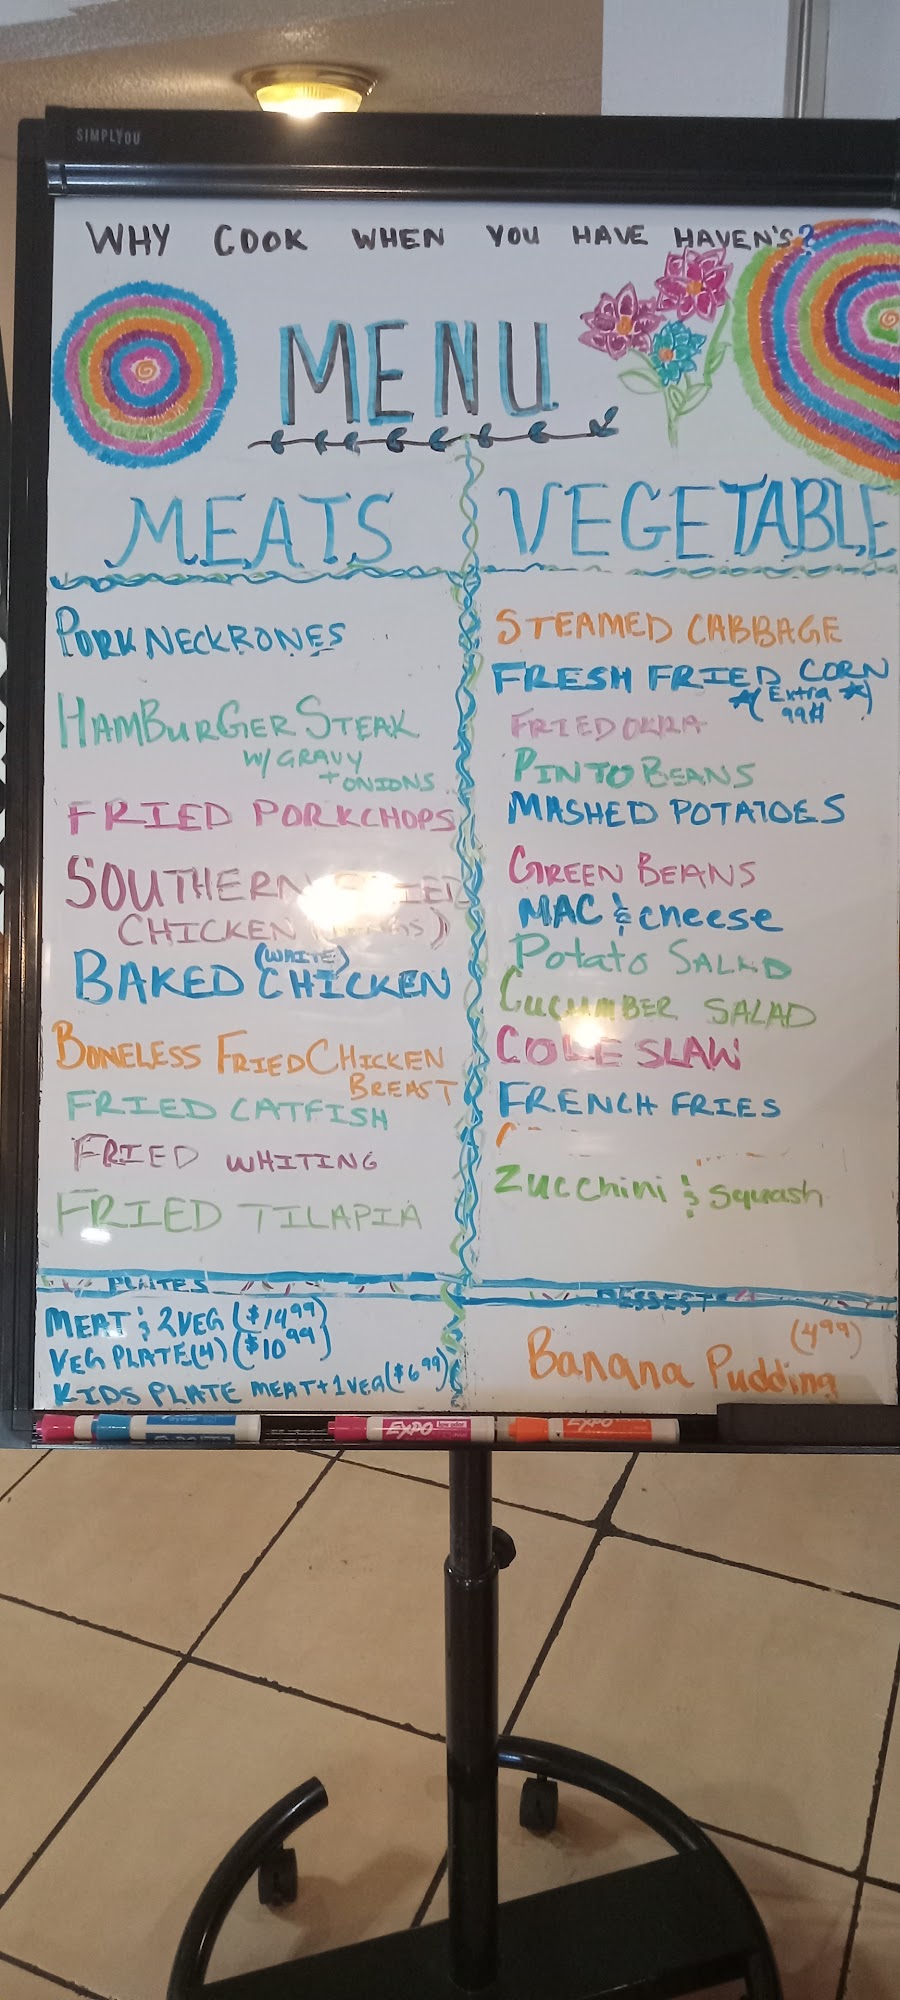 SIMPLYOU
WHY COOK WHEN YOU HAVE HAVEN'S?
MENU
MEATS
PORK NECKBONES
HAMBURGER STEAK
W/ GRAVY
+ ONIONS
FRIED PORKCHOPS
SOUTHERN
CHICKEN
BAKED (WHITE) CHICKEN
BONELESS FRIED CHICKEN
BREAST
FRIED CATFISH
FRIED WHITING
FRIED TILAPIA
PLATES
MEAT & 2VEG ($14.99)
VEG PLATE(4) ($10.99)
KIDS PLATE MEAT+1VEG($6.99)
VEGETABLE
STEAMED CABBAGE
FRESH FRIED CORN
*(Extra *)
99¢
FRIED OKRA
PINTO BEANS
MASHED POTATOES
GREEN BEANS
MAC & cheese
Potato SALAD
CUCUMBER SALAD
COLE SLAW
FRENCH FRIES
Zucchini & squash
(4.99)
Banana Pudding
EXPO
EXPO